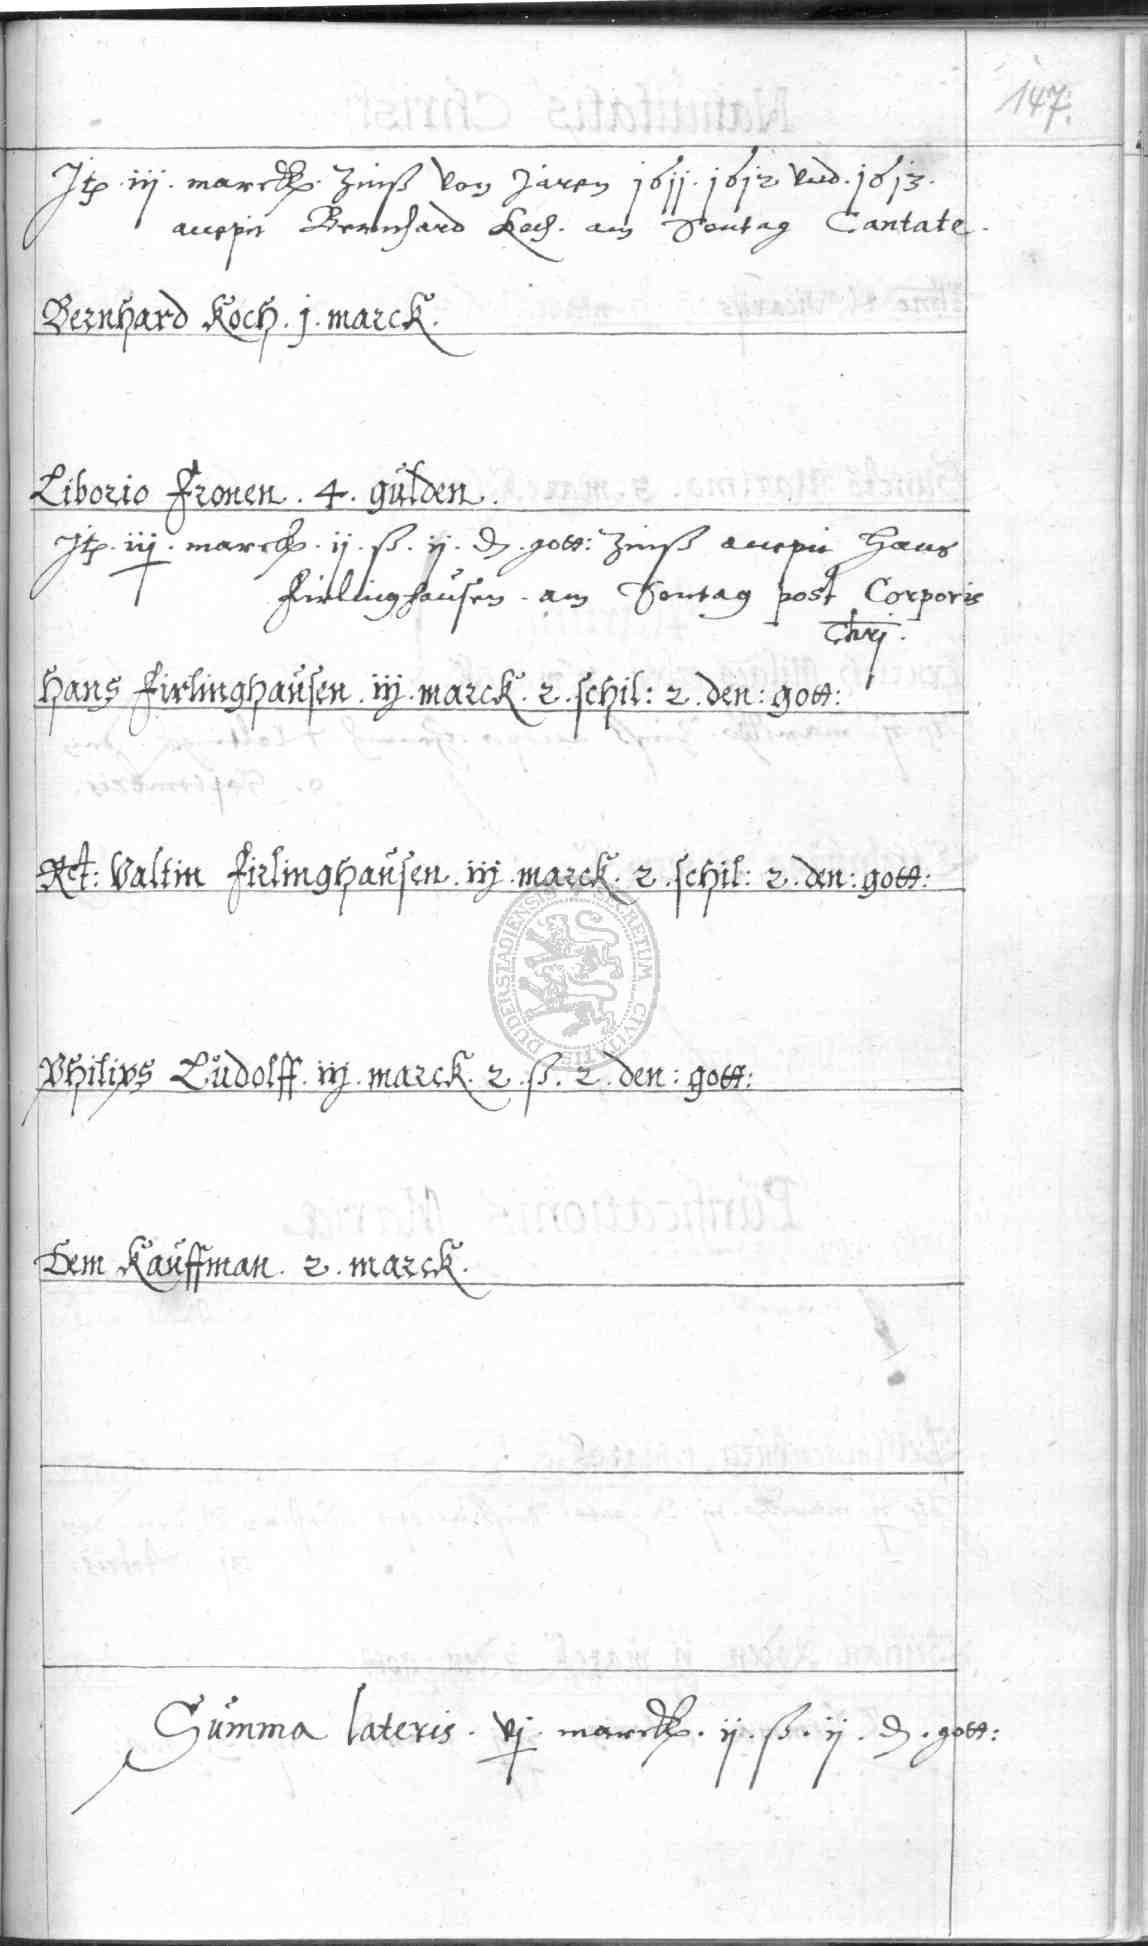 147.
Itē . iij . marckh . Zinß von Jaren 1611 . 1612 vnd . 1613 .
accepit Bernhard Koch . am Sontag Cantate .
Bernhard Koch . j . marck .
Liborio Fronen . 4 . gulden .
Itē . iij . marckh . ij . ß . ij . d . gott : Zinß accepit Hans
Firlinghausen . am Sontag post Corporis
Chrj .
Hans Firlinghausen . iij . marck . 2 . schil : 2 . den : gott :
Rct : Valtin Firlinghausen . iij . marck . 2 . schil : 2 . den : gott :
SECRETUM CIVITATIS DUDERSTADIENSIS
Philips Ludolff . iij . marck . 2 . ß . 2 . den : gott :
Dem Kauffman . 2 . marck .
Summa lateris . vj . marckh . ij . ß . ij . d . gott :